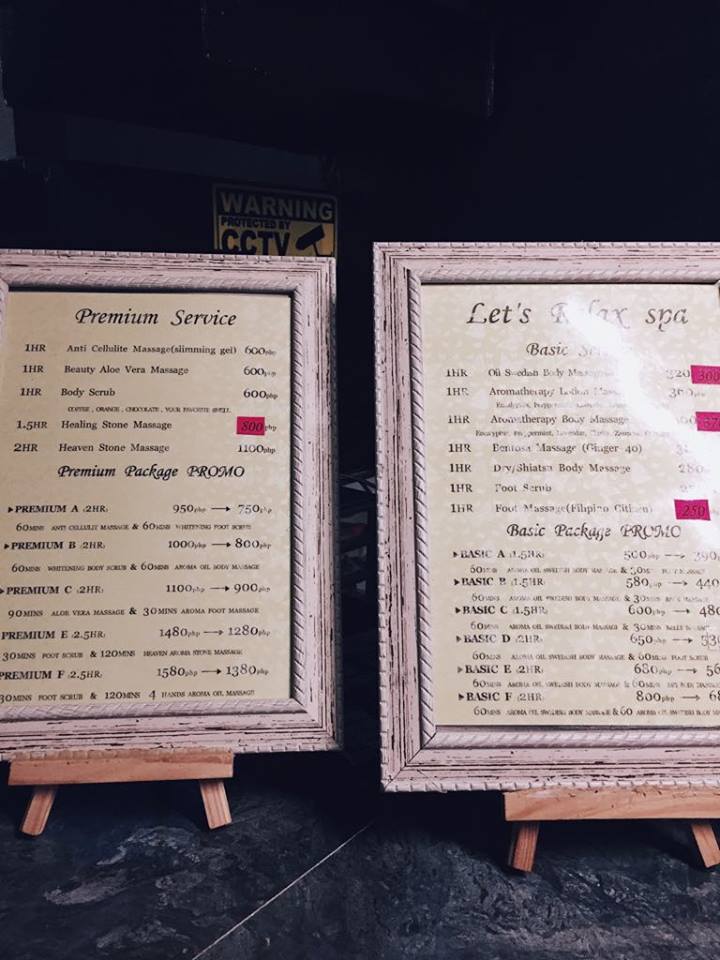 WARNING
PROTECTED BY
CCTV
Premium Service
1HR Anti Cellulite Massage(slimming gel) 600php
1HR Beauty Aloe Vera Massage 600php
1HR Body Scrub 600php
COFFEE , ORANGE , CHOCOLATE , YOUR FAVORITE SMELL
1.5HR Healing Stone Massage 800php
2HR Heaven Stone Massage 1100php
Premium Package PROMO
PREMIUM A (2HR) 950php → 750php
60MINS ANTI CELLULIT MASSAGE & 60MINS WHITENING FOOT SCRUB
PREMIUM B (2HR) 1000php → 800php
60MINS WHITENING BODY SCRUB & 60MINS AROMA OIL BODY MASSAGE
PREMIUM C (2HR) 1100php → 900php
90MINS ALOE VERA MASSAGE & 30MINS AROMA FOOT MASSAGE
PREMIUM E (2.5HR) 1480php → 1280php
30MINS FOOT SCRUB & 120MINS HEAVEN AROMA STONE MASSAGE
PREMIUM F (2.5HR) 1580php → 1380php
30MINS FOOT SCRUB & 120MINS 4 HANDS AROMA OIL MASSAGE
Let's Relax spa
Basic
1HR Oil Swedish Body Massage 320 300
1HR Aromatherapy Lotion 360
1HR Aromatherapy Body Massage
1HR Bentosa Massage (Ginger 40)
1HR Dry/Shiatsu Body Massage 280
1HR Foot Scrub
1HR Foot Massage(Filipino Citizen) 250
Basic Package PROMO
BASIC A (1.5HR) 500php → 390
60MINS AROMA OIL SWEDISH BODY MASSAGE & 30MINS FOOT MASSAGE
BASIC B (1.5HR) 580php → 440
60MINS AROMA OIL SWEDISH BODY MASSAGE & 30MINS
BASIC C (1.5HR) 600php → 480
60MINS AROMA OIL SWEDISH BODY MASSAGE & 30MINS
BASIC D (2HR) 650php →
60MINS AROMA OIL SWEDISH BODY MASSAGE & 60MINS FOOT SCRUB
BASIC E (2HR) 680php →
60MINS AROMA OIL SWEDISH BODY MASSAGE & 60MINS
BASIC F (2HR) 800php →
60MINS AROMA OIL SWEDISH BODY MASSAGE & 60 AROMA OIL SWEDISH BODY